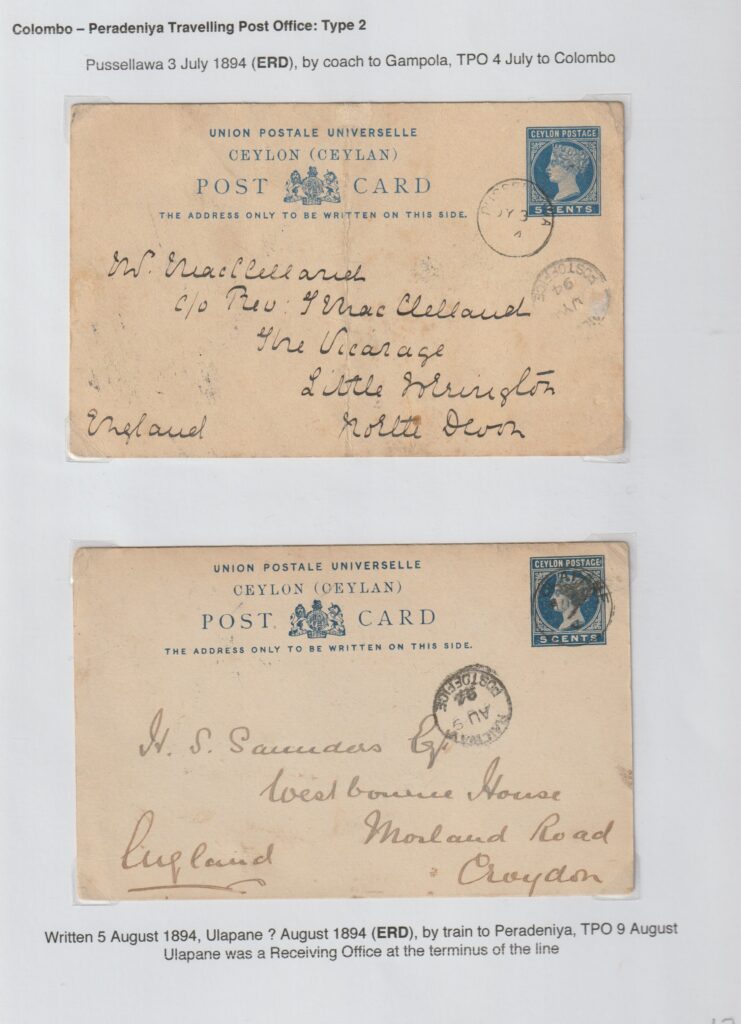 Colombo – Peradeniya Travelling Post Office: Type 2
Pussellawa 3 July 1894 (ERD), by coach to Gampola, TPO 4 July to Colombo
UNION POSTALE UNIVERSELLE
CEYLON (CEYLAN)
POST CARD
THE ADDRESS ONLY TO BE WRITTEN ON THIS SIDE.
CEYLON POSTAGE
5 CENTS
JY 3
POST OFFICE
94
JY
MacClelland
c/o Rev: MacClelland
The Vicarage
Little Torrington
England North Devon
UNION POSTALE UNIVERSELLE
CEYLON (CEYLAN)
POST CARD
THE ADDRESS ONLY TO BE WRITTEN ON THIS SIDE.
CEYLON POSTAGE
5 CENTS
RAILWAY
AU 9
94
POST OFFICE
H. S. Saunders Esq
Westbourne House
Morland Road
England Croydon
Written 5 August 1894, Ulapane ? August 1894 (ERD), by train to Peradeniya, TPO 9 August
Ulapane was a Receiving Office at the terminus of the line